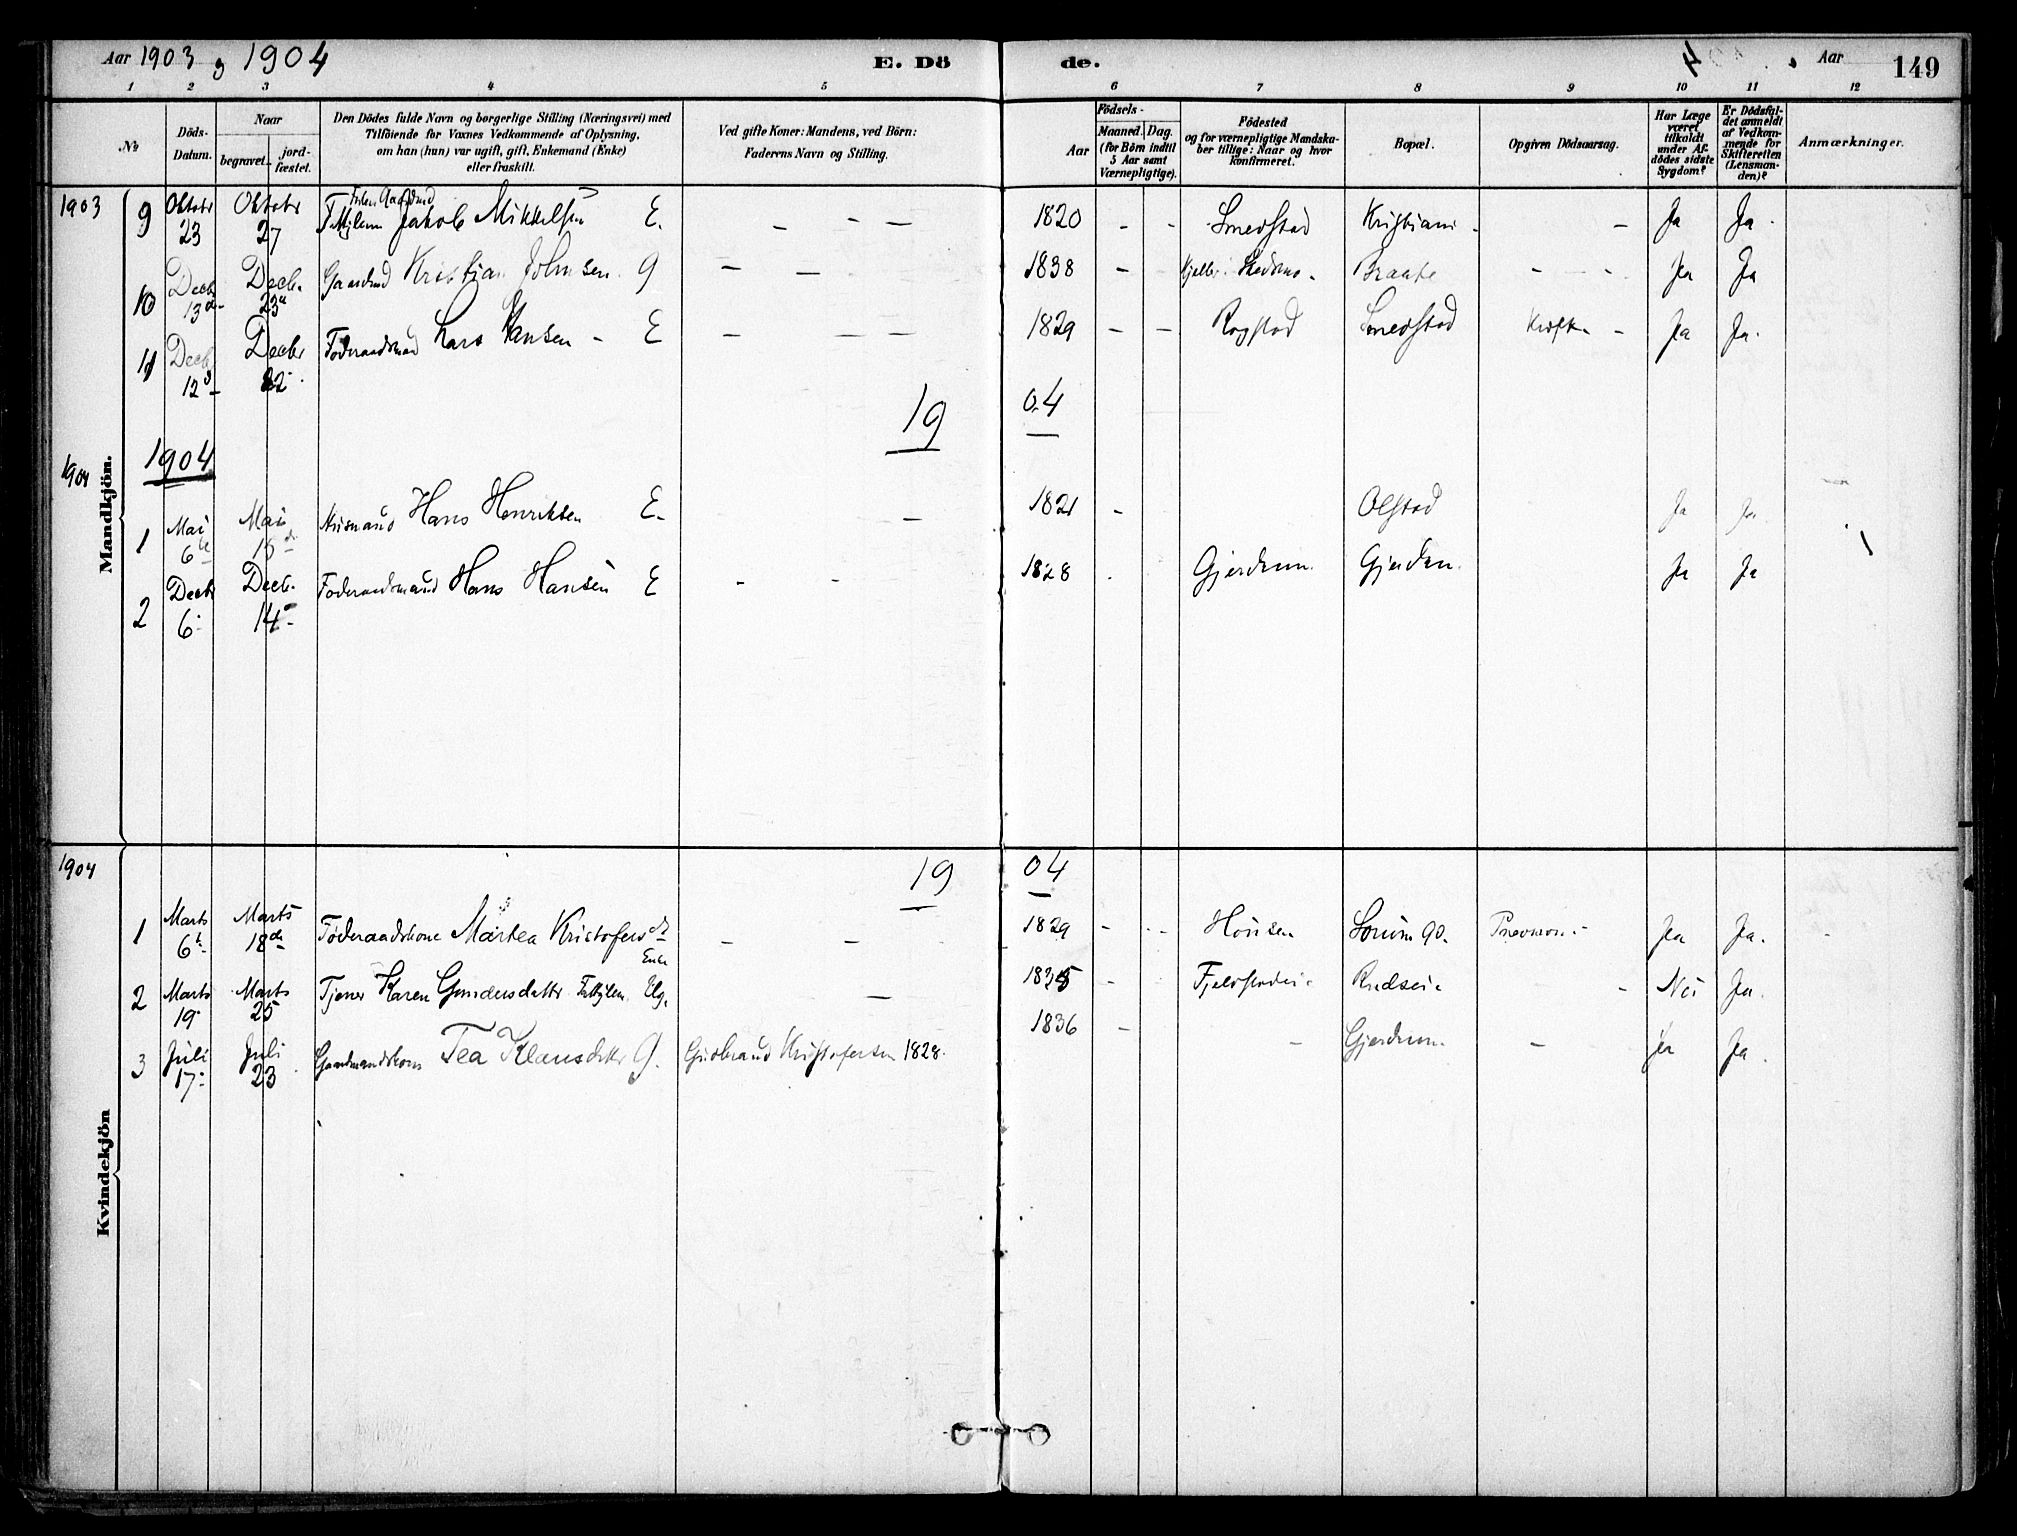 Aar 1903 og 1904 E. Dö de. Aar 149
1 2 3 4 5 6 7 8 9 10 11 12
No
Döds-Datum.
Naar
begravet. jord-fæstet.
Den Dödes fulde Navn og borgerlige Stilling (Næringsvei) med
Tilföiende for Voxnes Vedkommende af Oplysning,
om han (hun) var ugift, gift, Enkemand (Enke)
eller fraskilt.
Ved gifte Koner: Mandens, ved Börn:
Faderens Navn og Stilling.
Födsels-
Aar
Maaned. Dag.
(for Börn indtil
5 Aar samt
Værnepligtige).
Födested
og for værnepligtige Mandska-
ber tillige: Naar og hvor
konfirmeret.
Bopæl.
Opgiven Dödsaarsag.
Har Læge
været
tilkaldt
under Af-
dödes sidste
Sygdom?
Er Dödsfal-
det anmeldt
af Vedkom-
mende for
Skifteretten
(Lensman-
den)?
Anmærkninger.
Mandkjön.
1903 9 Oktobr 23 Oktobr 27 Jakob Mikkelsen E. — — 1820 - - Smedstad Kristiani - Ja Ja.
10 Decb 13de Decb. 23d Gaardmd Kristian Johnsen. G — — 1838 - Kjeller Braate - - Ja Ja
11 Decb 12d Decbr 22. Föderaadsmand Lars Hansen - E — — 1829 - - Rogstad Smedstad Kræft - Ja Ja.
19 04
1904
1904
1 Mai 6te Mai Husmand Hans Henriksen E. — 1821 - Olstad Ja Ja
2 Decbr 6 Decb. 14de Foderaadsmand Hans Hansen E - - 1828 Gjerdrum. Gjerdru. Ja Ja
Kvindekjön
1904
19 04
1 Marts 6te Marts 18de Föderaadskone Martea Kristofersdt Enke — — 1829 - - Hönsen Sörum go. Pnevmoni - Ja Ja.
2 Marts 19 Marts 25 Tjener Karen Gundersdatter Fattiglem Ug. — 1835 - Rudsei - Nei Ja.
3 Juli 17 Juli 23 Gaardmandskone Tea Klausdatter G. Gudbrand Kristofersen 1828. 1836 - - Gjerdrum - Ja Ja.